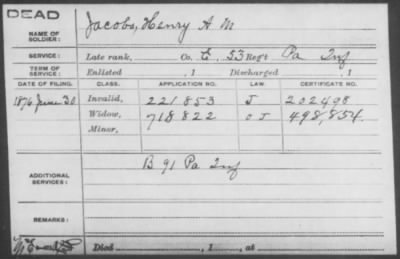 DEAD
NAME OF SOLDIER: Jacobs, Henry A. M
SERVICE: Late rank, Co. E, 53 Reg't Pa Inf
TERM OF SERVICE: Enlisted , 1 Discharged , 1
DATE OF FILING. CLASS. APPLICATION NO. LAW. CERTIFICATE NO.
1876 June 30 Invalid, 221 853 J 202498
Widow, 718822 O J 498,854.
Minor,
ADDITIONAL SERVICES: B 91 Pa Inf
REMARKS:
Died , 1 , at